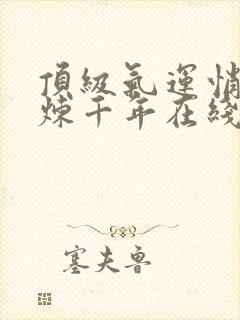 頂級氣運悄
煉千年在綫
塞夫魯